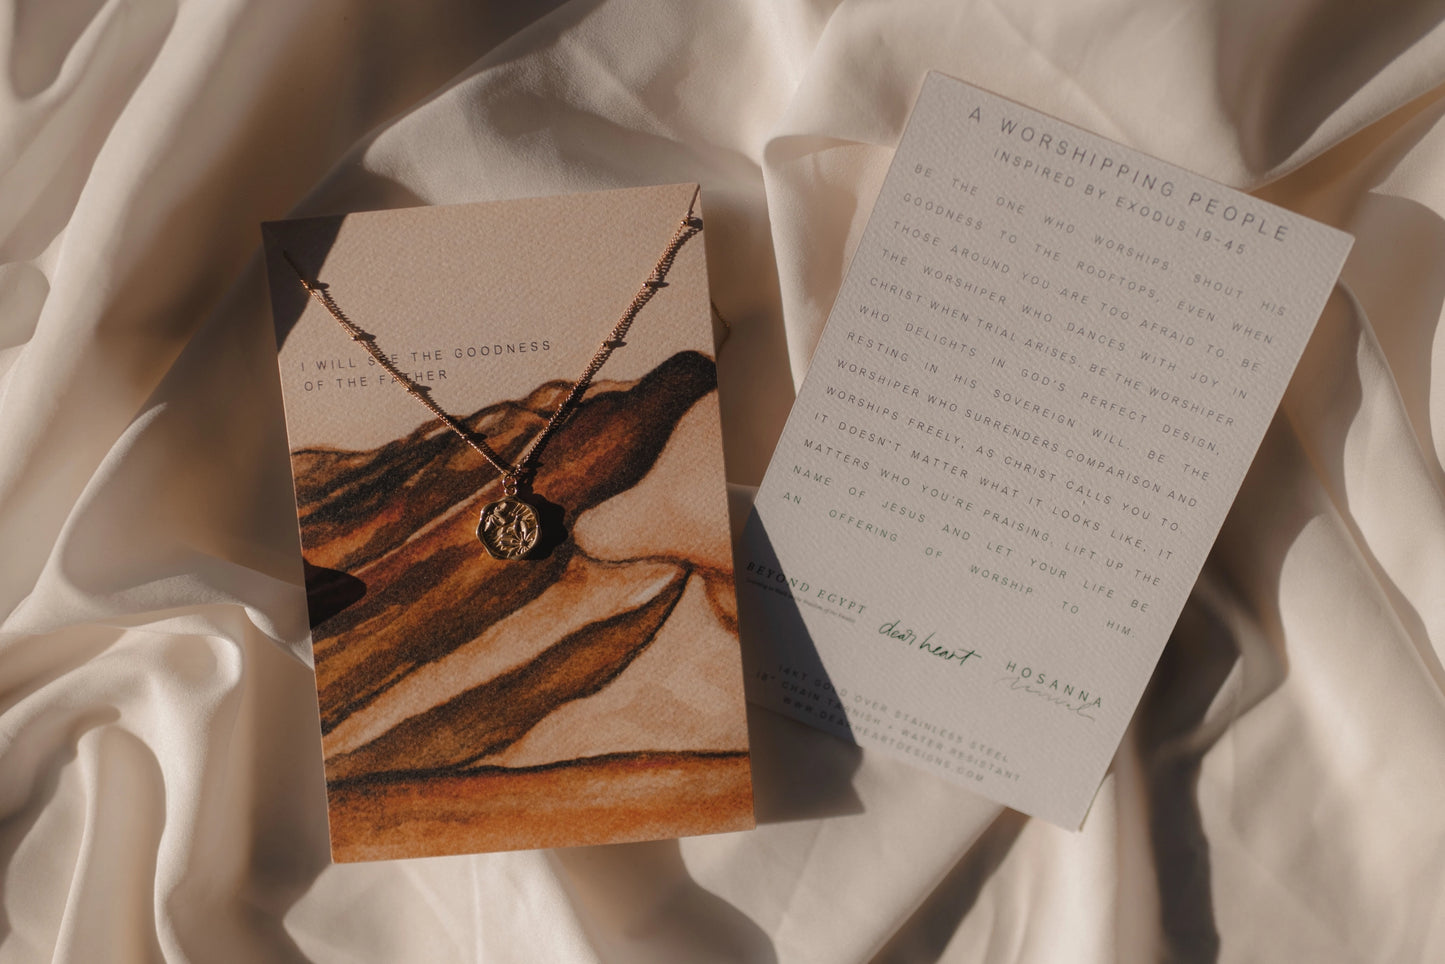 I WILL SEE THE GOODNESS
OF THE FATHER
A WORSHIPPING PEOPLE
INSPIRED BY EXODUS 19-45
BE THE ONE WHO WORSHIPS. SHOUT HIS
GOODNESS TO THE ROOFTOPS, EVEN WHEN
THOSE AROUND YOU ARE TOO AFRAID TO. BE
THE WORSHIPER WHO DANCES WITH JOY IN
CHRIST WHEN TRIAL ARISES. BE THE WORSHIPER
WHO DELIGHTS IN GOD'S PERFECT DESIGN,
RESTING IN HIS SOVEREIGN WILL. BE THE
WORSHIPER WHO SURRENDERS COMPARISON AND
WORSHIPS FREELY, AS CHRIST CALLS YOU TO.
IT DOESN'T MATTER WHAT IT LOOKS LIKE, IT
MATTERS WHO YOU'RE PRAISING. LIFT UP THE
NAME OF JESUS AND LET YOUR LIFE BE
AN OFFERING OF WORSHIP TO HIM.
BEYOND EGYPT
dear heart
HOSANNA
Revival
14KT GOLD OVER STAINLESS STEEL
18" CHAIN TARNISH + WATER RESISTANT
WWW.DEARHEARTDESIGNS.COM